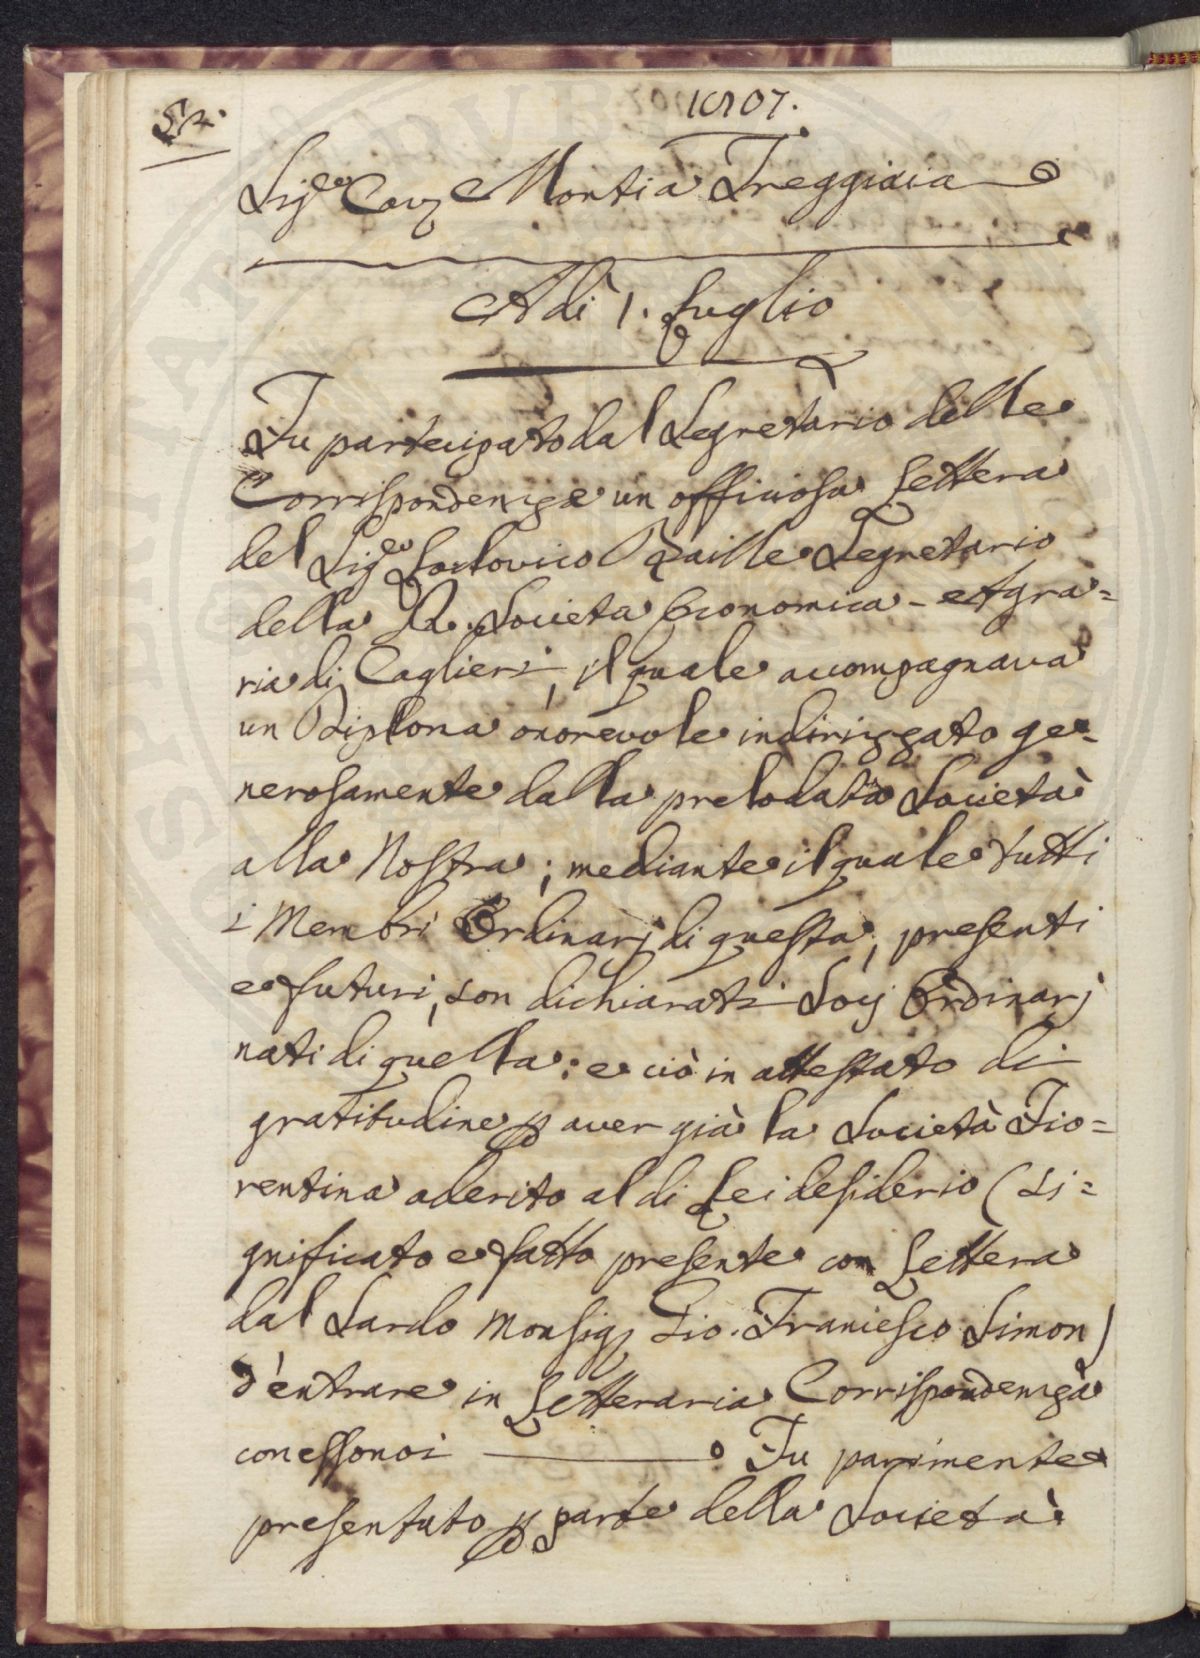 52.
1807.
Sig.r Cav.r Montia Freggiaia
Adì 1. Luglio
Fu partecipato dal Segretario delle
Corrispondenze un officiosa Lettera
del Sig.r Lodovico Baille Segretario
della R. Societa Economica-ed Agra=
ria di Caglieri, il quale accompagnava
un Diploma onorevole indirizzato ge=
nerosamente dalla prelodata Società
alla Nostra; mediante il quale tutti
i Membri Ordinarj di questa, presenti
e futuri, son dichiarati Socj Ordinarj
nati di quella: e ciò in attestato di
gratitudine p aver già la Società Fio=
rentina aderito al di Lei desiderio (si=
gnificato e fatto presente con Lettera
dal Sardo Monsig.r Gio. Francesco Simon)
d'entrare in Letteraria Corrispondenza
con essonoi Fu parimente
presentato p parte della Società